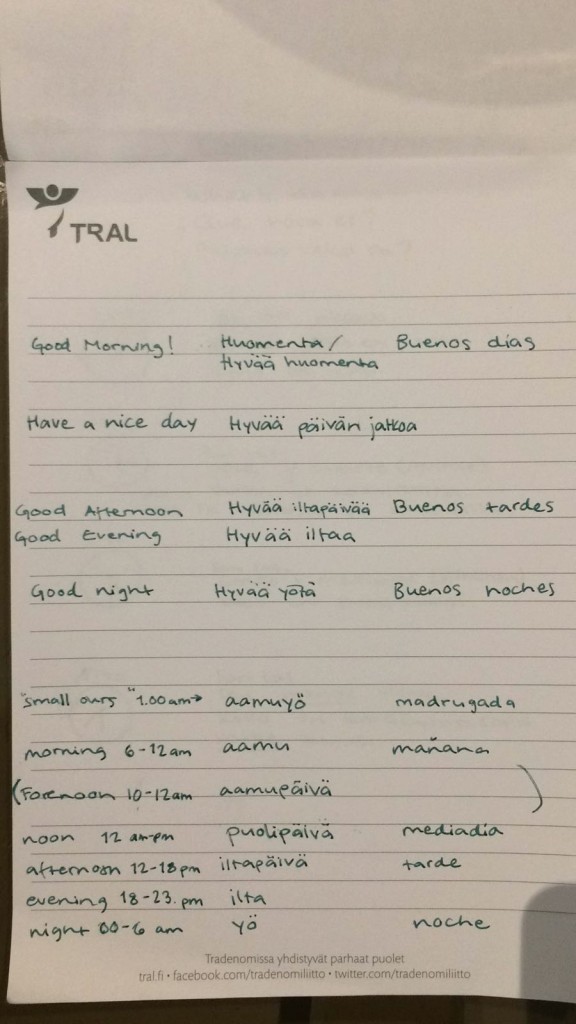 TRAL
Good Morning! Huomenta/ Buenos días
Hyvää huomenta
Have a nice day Hyvää päivän jatkoa
Good Afternoon Hyvää iltapäivää Buenos tardes
Good Evening Hyvää iltaa
Good night Hyvää yötä Buenos noches
"small ours" 1.00am→ aamuyö madrugada
morning 6-12am aamu mañana
(Forenoon 10-12am aamupäivä )
noon 12 am-pm puolipäivä mediadia
afternoon 12-18pm iltapäivä tarde
evening 18-23.pm ilta
night 00-6 am yö noche
Tradenomissa yhdistyvät parhaat puolet
tral.fi • facebook.com/tradenomiliitto • twitter.com/tradenomiliitto